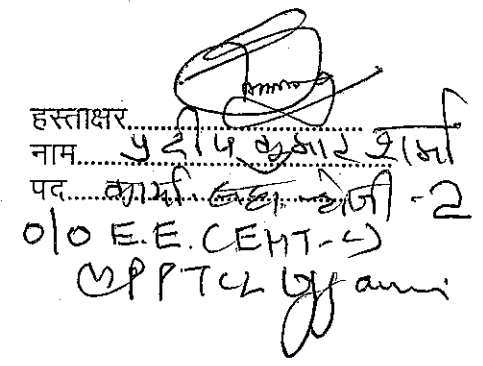 हस्ताक्षर
नाम प्रदीप कुमार शर्मा
पद कार्या सहा श्रेणी-2
O/O E.E. (EHT-L)
MPPTCL Ujjain